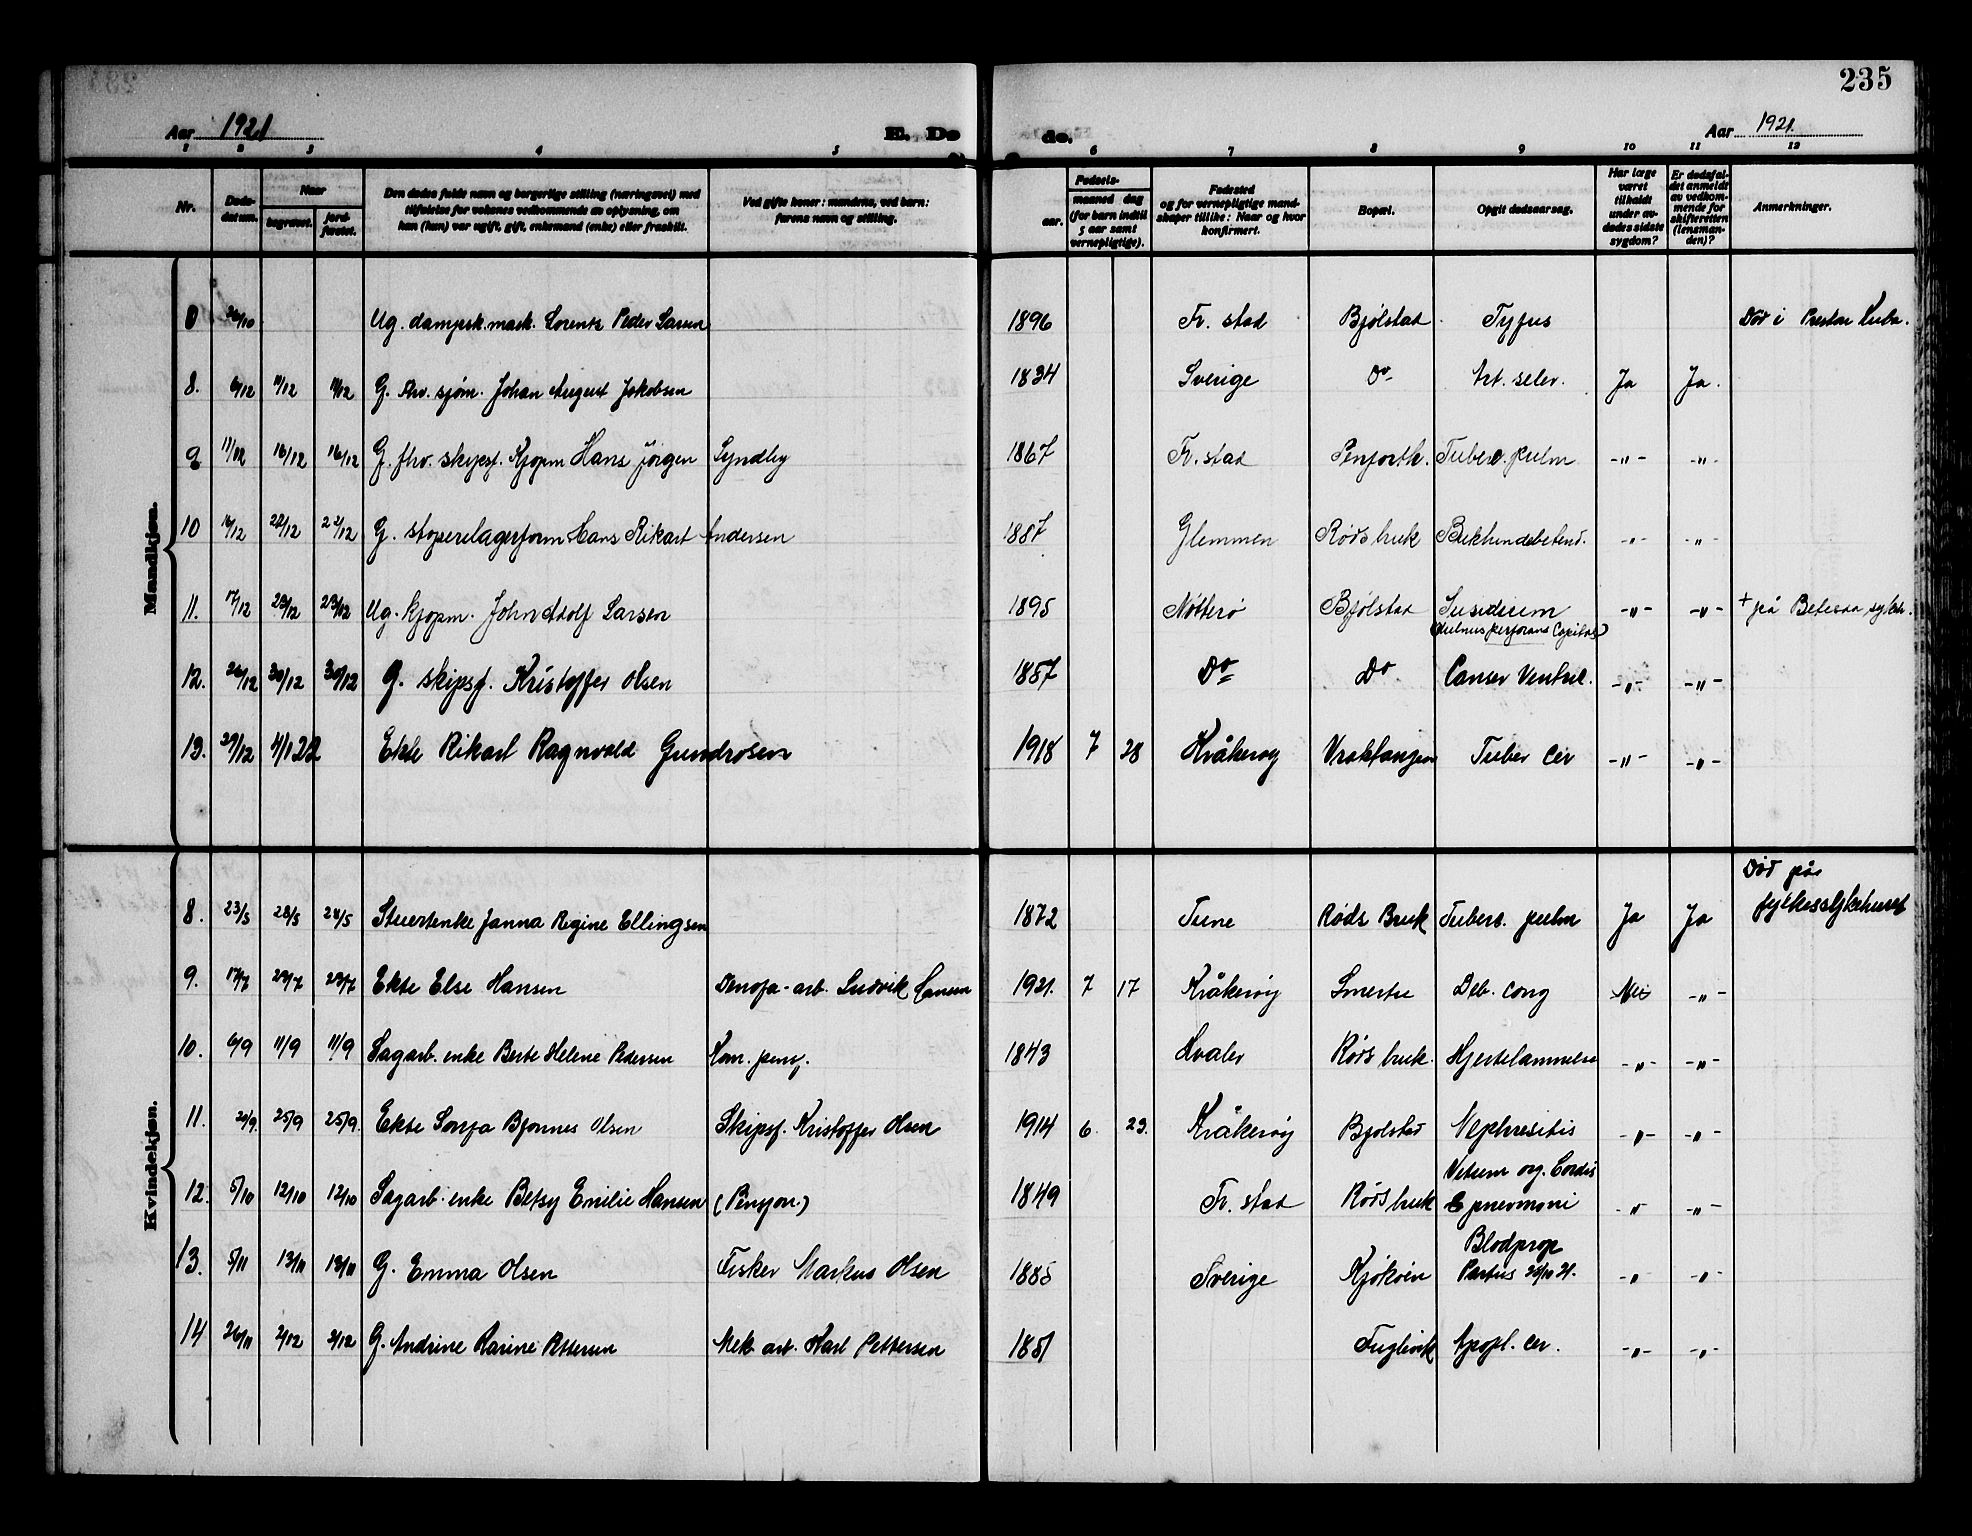 235
Aar 1921 E. Dø de. Aar 1921.
1 2 3 4 5 6 7 8 9 10 11 12
Nr. Døds-datum. Naar begravet. jord-fæstet. Den dødes fulde navn og borgerlige stilling (næringsvei) med tilføielse for voksnes vedkommende av oplysning, om han (hun) var ugift, gift, enkemand (enke) eller fraskilt. Ved gifte koner: mandens, ved barn: farens navn og stilling. Fødsels- aar. maaned dag (for barn indtil 5 aar samt vernepligtige). Fødested og for vernepligtige mandskaper tillike: Naar og hvor konfirmert. Bopæl. Opgit dødsaarsag. Har læge været tilkaldt under avdødes sidste sygdom? Er dødsfaldet anmeldt av vedkommende for skifteretten (lensmanden)? Anmerkninger.
Mandkjøn.
0 26/10 Ug. dampsk.mask. Lorentz Peder Larsen 1896 Fr. stad Bjølstad Tyfus Død i Preston Kuba.
8. 6/12 11/12 11/12 G. fhv. sjøm. Johan August Jakobsen 1834 Sverige Do Art. seler. Ja Ja.
9 11/12 16/12 16/12 G. fhv. skipsf. Kjøpm Hans Jørgen Lyndby 1867 Fr. stad Tuberc. pulm -"- -"-
10 16/12 22/12 22/12 G. stoperilagerform Hans Rikart Andersen 1887 Glemmen Røds bruk Bukhindebetend. -"- -"-
11. 17/12 23/12 23/12 Ug. kjøpm. John Adolf Larsen 1895 Nøtterø Bjølstad Susidium -"- -"- + på Betesda sykeh.
(Vulnus perforans Capitas)
12. 26/12 30/12 30/12 G. skipsf. Kristoffer Olsen 1857 Do Do Canser Ventric. -"- -"-
13. 29/12 4/1 22 Ekte Rikart Ragnvald Gundrosen 1918 7 28 Kråkerøy Vraktangen Tuber Cer -"- -"-
Kvindekjøn.
8. 23/5 28/5 28/5 Stuertenke Janna Regine Ellingsen 1872 Tune Røds Bruk Tuberc. pulm Ja Ja Død på fylkessykehuset
9. 17/7 23/7 23/7 Ekte Else Hansen Denofa-arb. Ludvik Hansen 1921. 7 17 Kråkerøy Smertu Deb. cong Nei -"-
10. 6/9 11/9 11/9 Sagarb. enke Berte Helene Pedersen Kom. pens. 1843 Hvaler Røds bruk. Hjertelammelse -"- -"-
11. 20/9. 25/9 25/9. Ekte Sonja Bjønnes Olsen Skipsf. Kristoffer Olsen 1914 6. 23. Kråkerøy Bjølstad Nephresitis -"- -"-
12. 5/10 12/10 12/10 Sagarb. enke Betsy Emilie Hansen (Pensjon) 1849 Fr. stad Røds bruk Vitium org. Cordis & pnevmoni -"- -"-
13. 5/11 13/11 13/11 G. Emma Olsen Fisker Markus Olsen 1885 Sverige Kjøkøen Blodprop Partus 26/10 21. -"- -"-
14 26/11 2/12 2/12 G. Andrine Karine Pettersen Mek. arb. Karl Pettersen 1851 Fuglevik Apopl. cer. -"- -"-